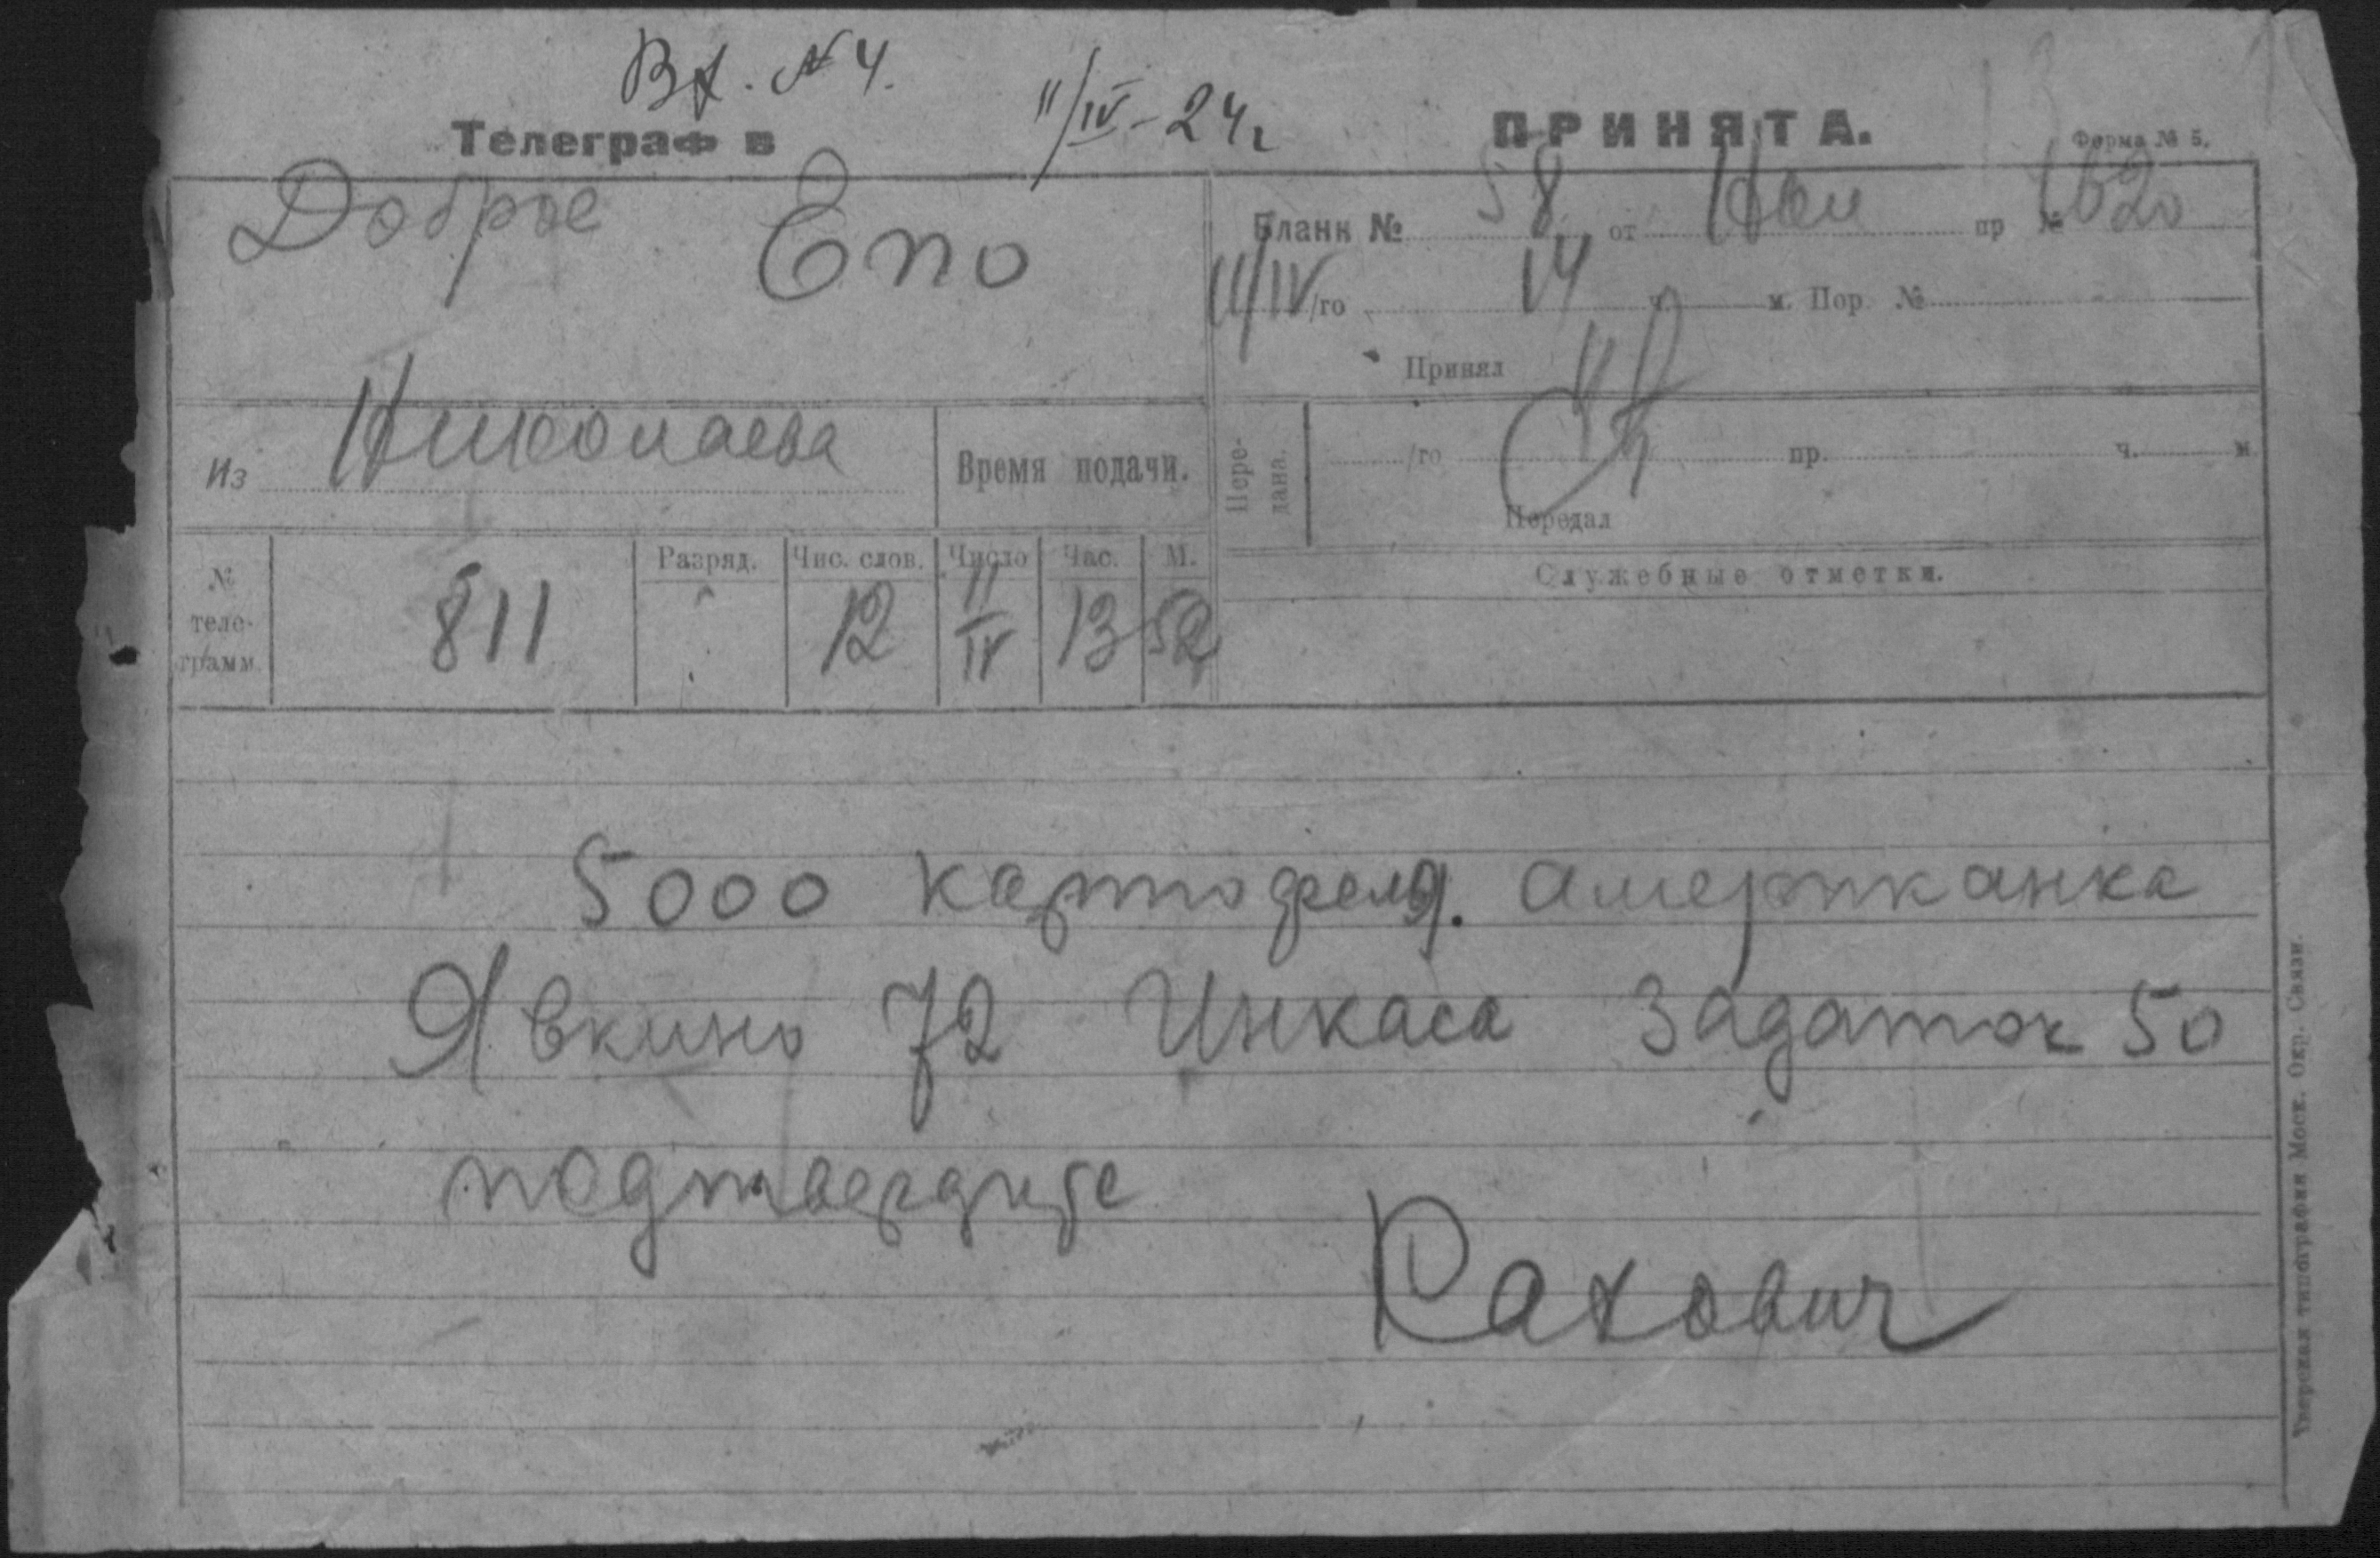 Вх. №4. 11/IV-24г
Телеграф в ПРИНЯТА. Форма № 5.
Доброе Епо
Бланк № 58 от Ник пр № 1620
11/IV/го 14 ч. м. Пор. №
Принял
Из Николаева
Время подачи.
Пере-
дана.
/го пр. ч. м
Передал
№
теле-
грамм.
811
Разряд. Чис. слов. Число Час. М.
12 11/IV 13 52
Служебные отметки.
5000 картофеля. американка
Явкино 72 Инкаса Задаток 50
подтвердите
Рахович
Тверская типография Моск. Окр. Связи.